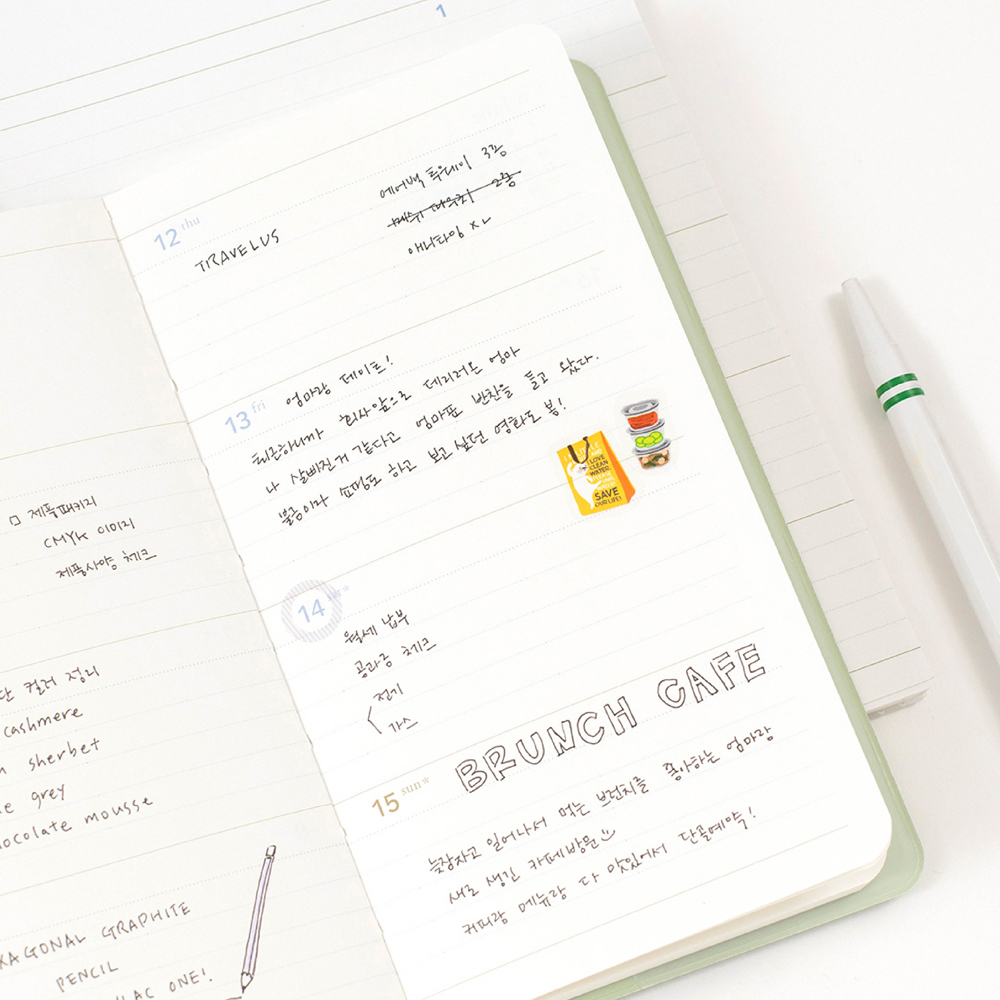 1
□ 제품패키지
CMYK 이미지
제품사양 체크
컬러 정리
cashmere
sherbet
grey
chocolate mousse
HEXAGONAL GRAPHITE
PENCIL
LILAC ONE!
12 thu
TRAVELUS
에어백 투웨이 3종
메쉬 파우치 2종
애니타임 XL
13 fri
엄마랑 데이트!
퇴근하니까 회사앞으로 데리러온 엄마
나 살빠진거 같다고 엄마표 반찬을 들고 왔다.
불금이라 쇼핑도 하고 보고싶던 영화도 봄!
I LOVE
CLEAN
WATER
SAVE
OUR LIFE!
14 sat
월세 납부
공과금 체크
전기
가스
BRUNCH CAFE
15 sun
늦잠자고 일어나서 먹는 브런치를 좋아하는 엄마랑
새로 생긴 카페방문
커피랑 메뉴랑 다 맛있어서 단골예약!